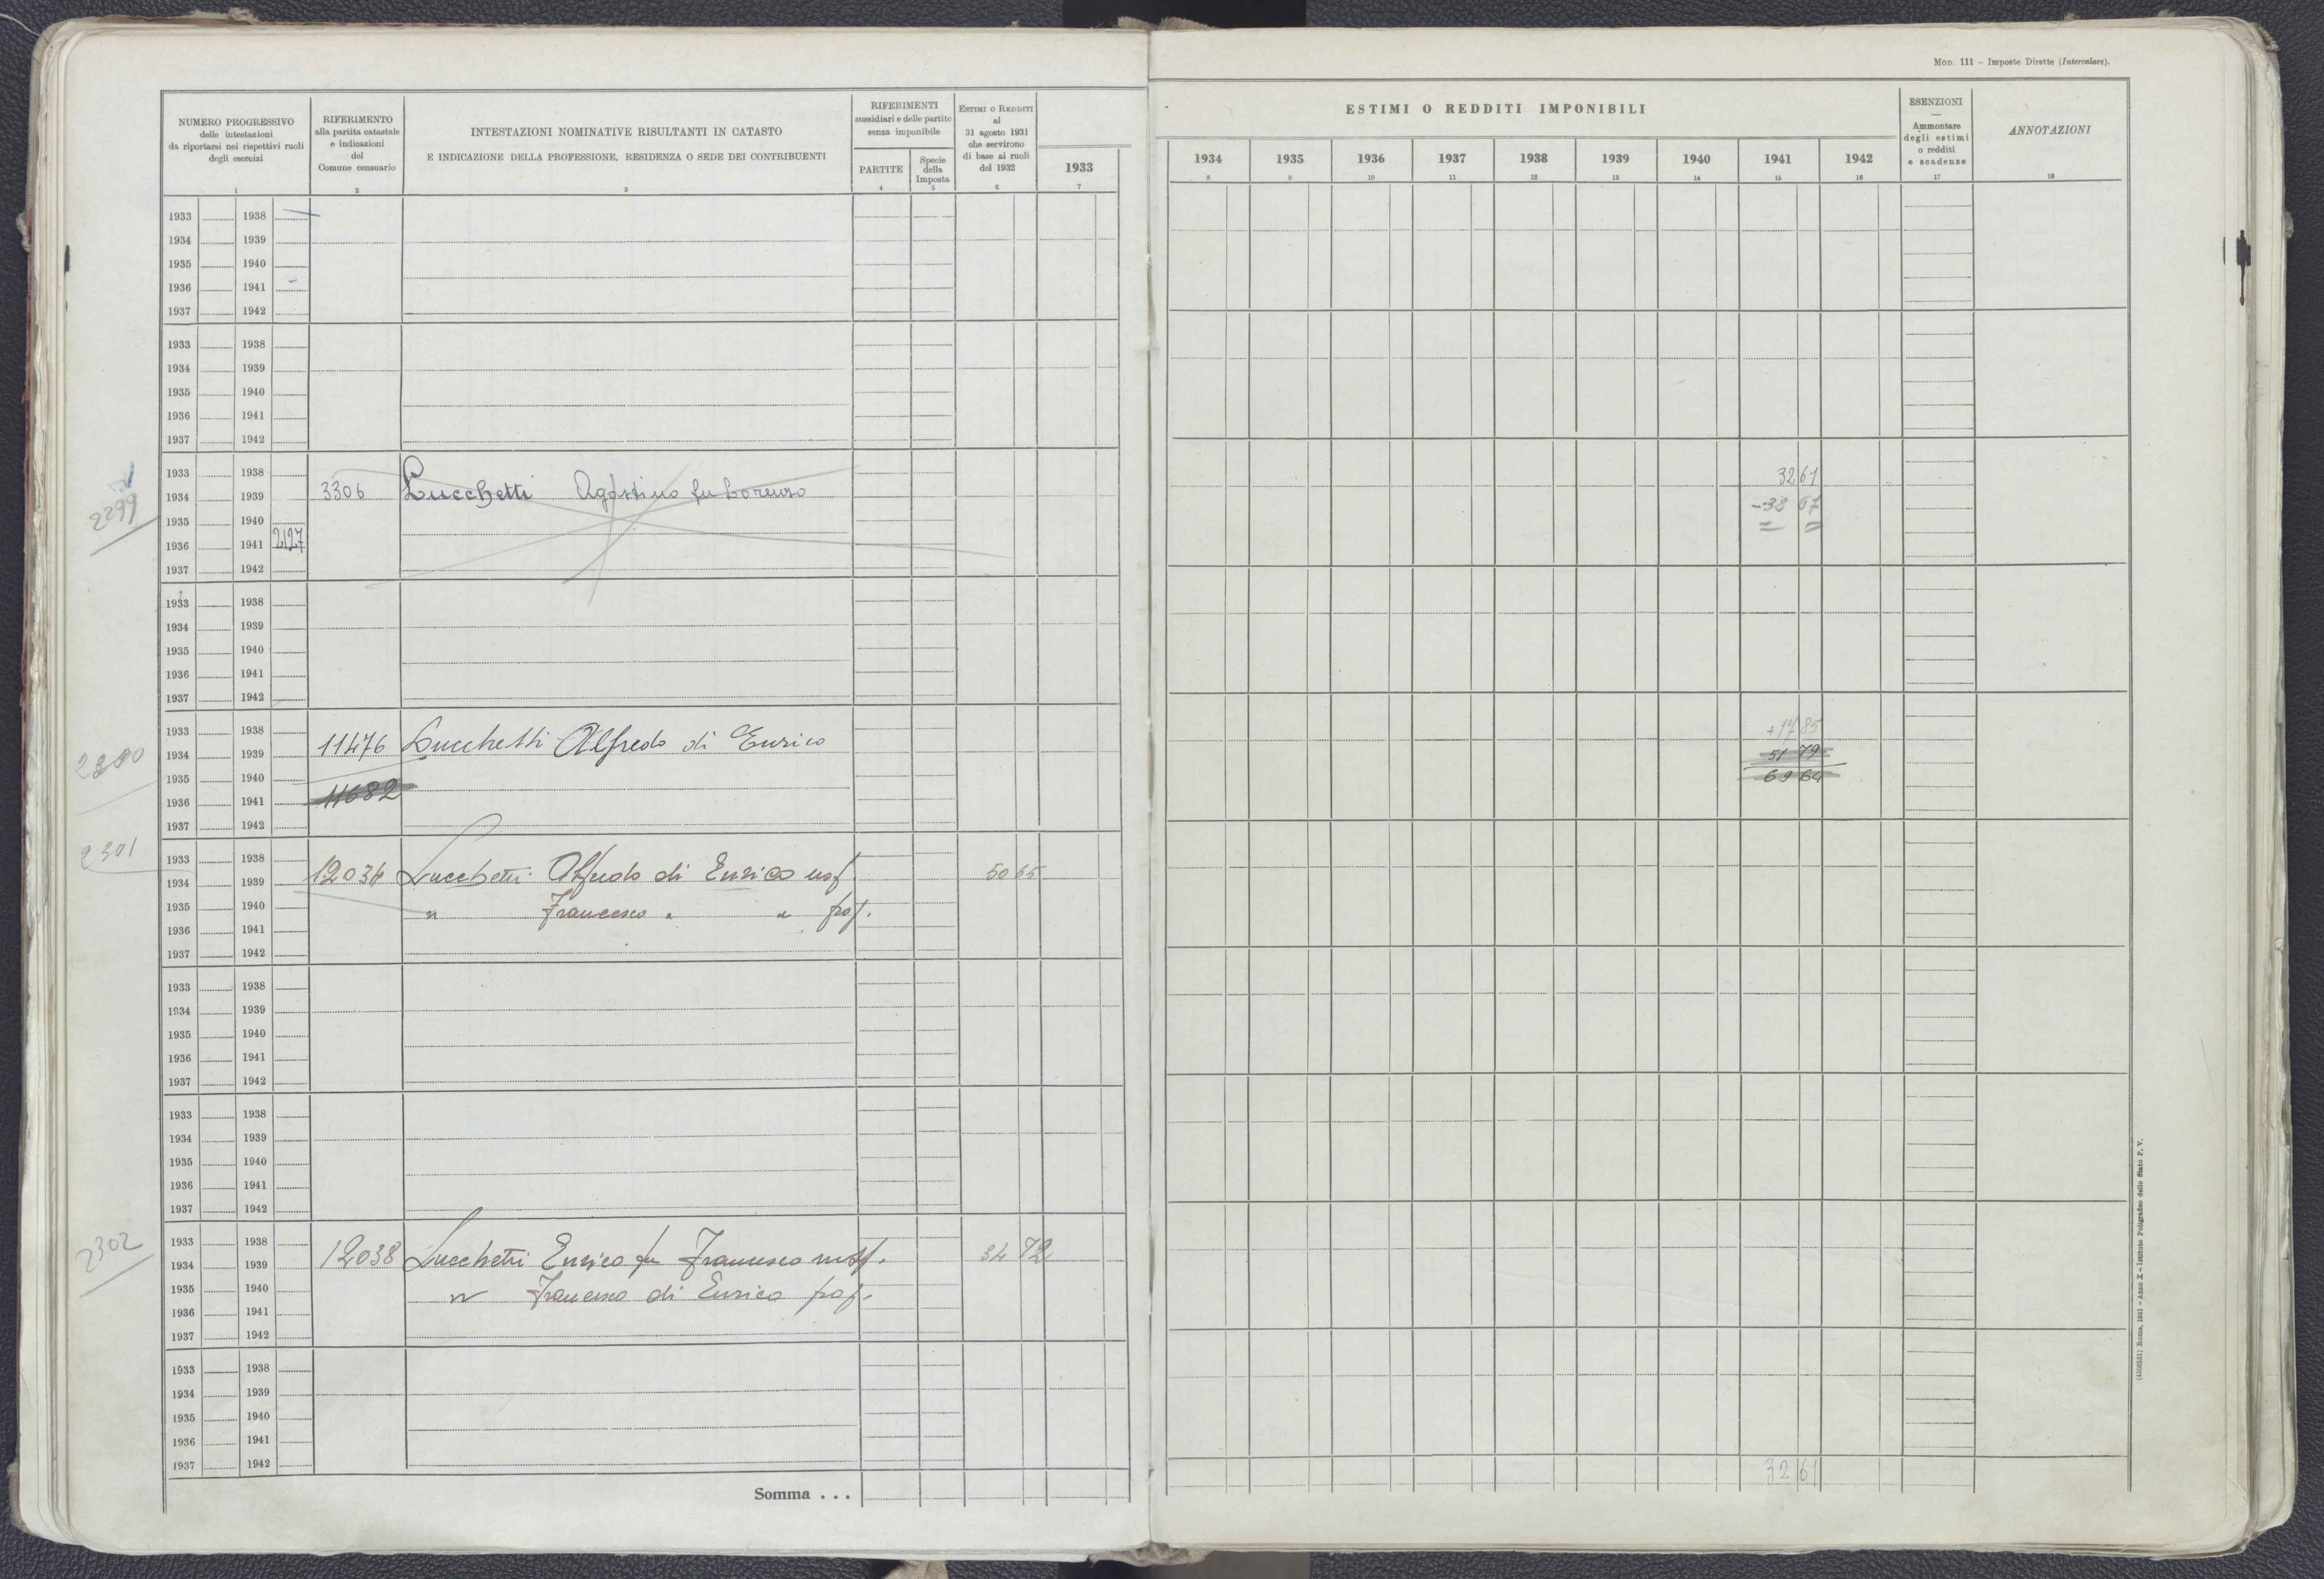 Mod. 111 - Imposte Dirette (Intercalare).
NUMERO PROGRESSIVO
delle intestazioni
da riportarsi nei rispettivi ruoli
degli esercizi
1
RIFERIMENTO
alla partita catastale
e indicazioni
del
Comune censuario
2
INTESTAZIONI NOMINATIVE RISULTANTI IN CATASTO
E INDICAZIONE DELLA PROFESSIONE, RESIDENZA O SEDE DEI CONTRIBUENTI
3
RIFERIMENTI
sussidiari e delle partite
senza imponibile
PARTITE
4
Specie
della
Imposta
5
Estimi o Redditi
al
31 agosto 1931
che servirono
di base ai ruoli
del 1932
6
1933
7
ESTIMI O REDDITI IMPONIBILI
1934 1935 1936 1937 1938 1939 1940 1941 1942
8 9 10 11 12 13 14 15 16
ESENZIONI
—
Ammontare
degli estimi
o redditi
e scadenze
17
ANNOTAZIONI
18
1933 1938
1934 1939
1935 1940
1936 1941
1937 1942
1933 1938
1934 1939
1935 1940
1936 1941
1937 1942
2299
1933 1938
1934 1939 3306 Lucchetti Agostino fu Lorenzo 32 61
1935 1940 -33 67
1936 1941 2127
1937 1942
1933 1938
1934 1939
1935 1940
1936 1941
1937 1942
2300
1933 1938 +17 85
1934 1939 11476 Lucchetti Alfredo di Enrico 51 79
1935 1940 69 64
1936 1941 11682
1937 1942
2301
1933 1938
1934 1939 12034 Lucchetti Alfredo di Enrico usf 50 65
1935 1940 " Francesco " " prop.
1936 1941
1937 1942
1933 1938
1934 1939
1935 1940
1936 1941
1937 1942
1933 1938
1934 1939
1935 1940
1936 1941
1937 1942
2302
1933 1938
1934 1939 12038 Lucchetti Enrico fu Francesco 34 72
1935 1940 " Francesco di Enrico prop.
1936 1941
1937 1942
1933 1938
1934 1939
1935 1940
1936 1941
1937 1942
Somma . . . 32 61
(4105281) Roma, 1931 - Anno X - Istituto Poligrafico dello Stato P. V.